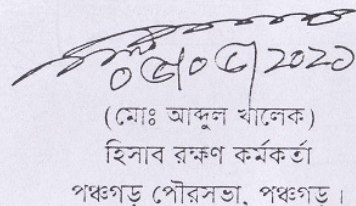 (মোঃ আব্দুল খালেক)
হিসাব রক্ষণ কর্মকর্তা
পঞ্চগড় পৌরসভা, পঞ্চগড়।